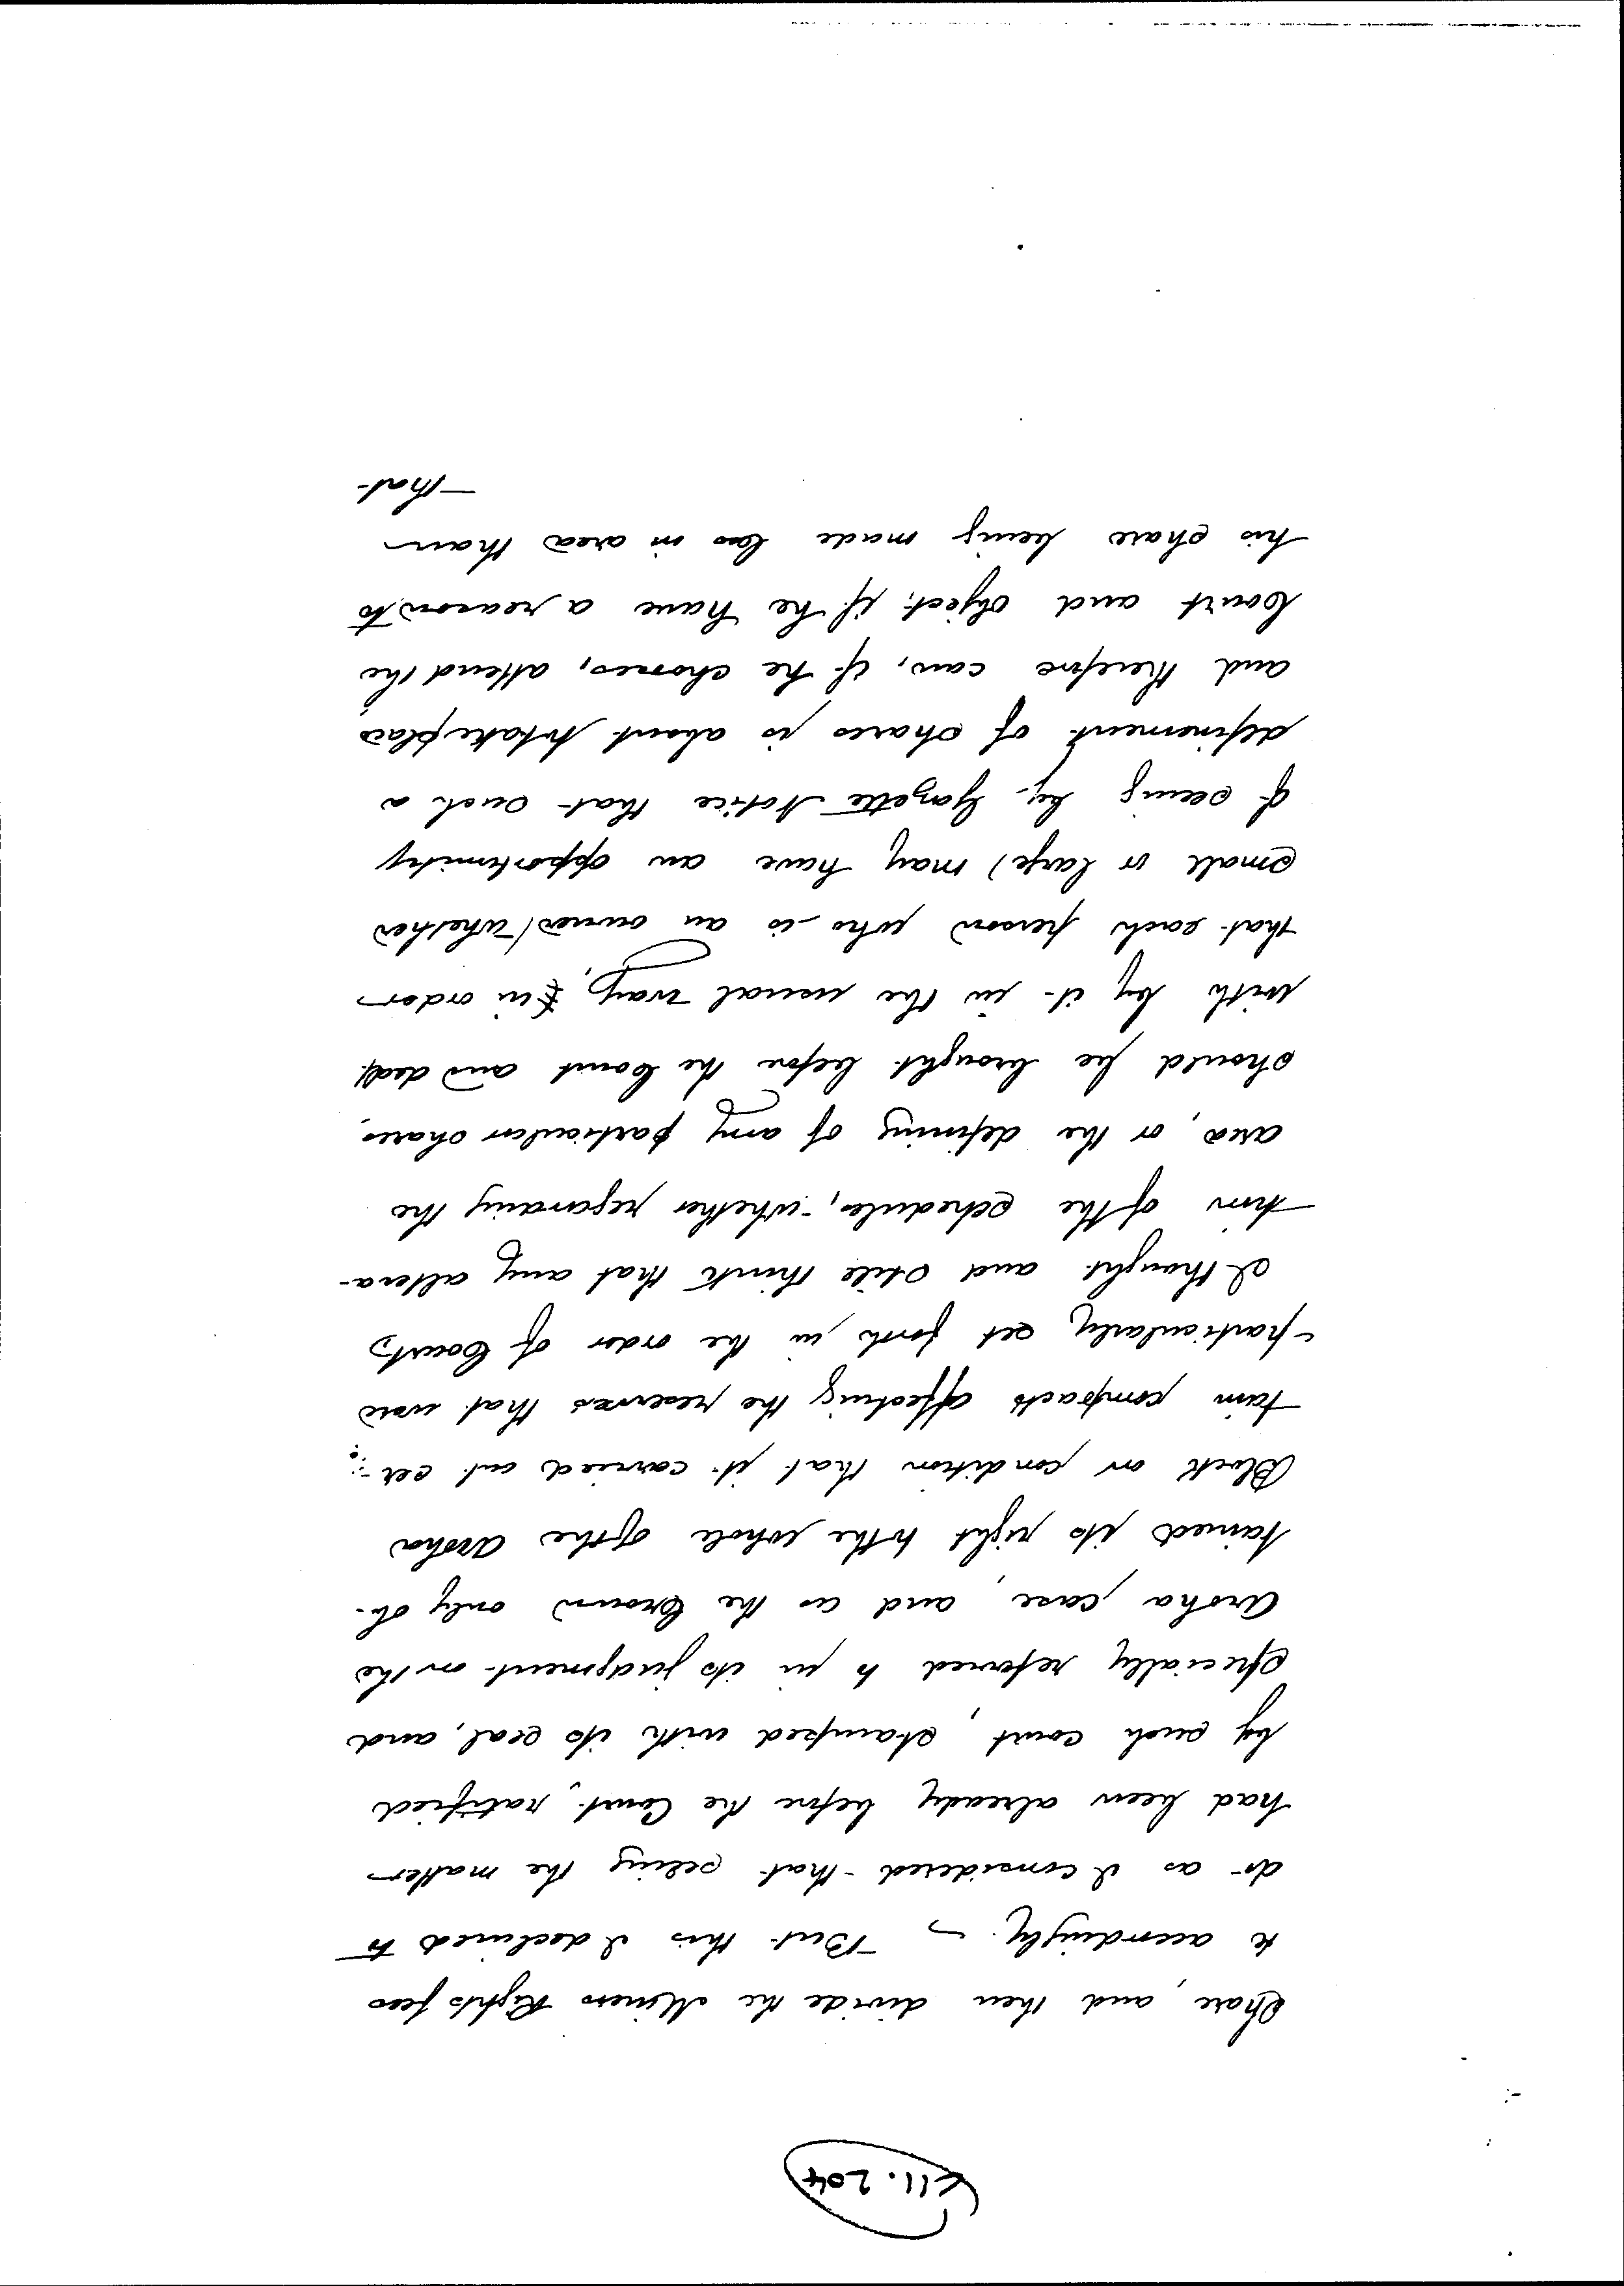 K11.204
Share, and then divide the Miners Rights fees
to accordingly. – But this I declined to
do as I considered that seeing the matter
had been already before the Court, ratified
by such court, stamped with its seal, and
specially referred to in its judgment on the
Aroha case, and as the Crown only ob-
tained its right to the whole of the Aroha
Block on condition that it carried out cer-
tain compacts affecting the reserves that were
particularly set forth in the order of Court,
I thought and still think that any altera-
tion of the schedules, whether regarding the
area, or the defining of any particular shares,
should be brought before the Court and dealt
with by it in the usual way, in order
that each person who is an owner (whether
small or large) may have an opportunity
of seeing by Gazette Notice that such a
definement of shares is about to take place
and therefore can, if he chooses, attend the
Court and object, if he have a reason to
his share being made less in area than
that